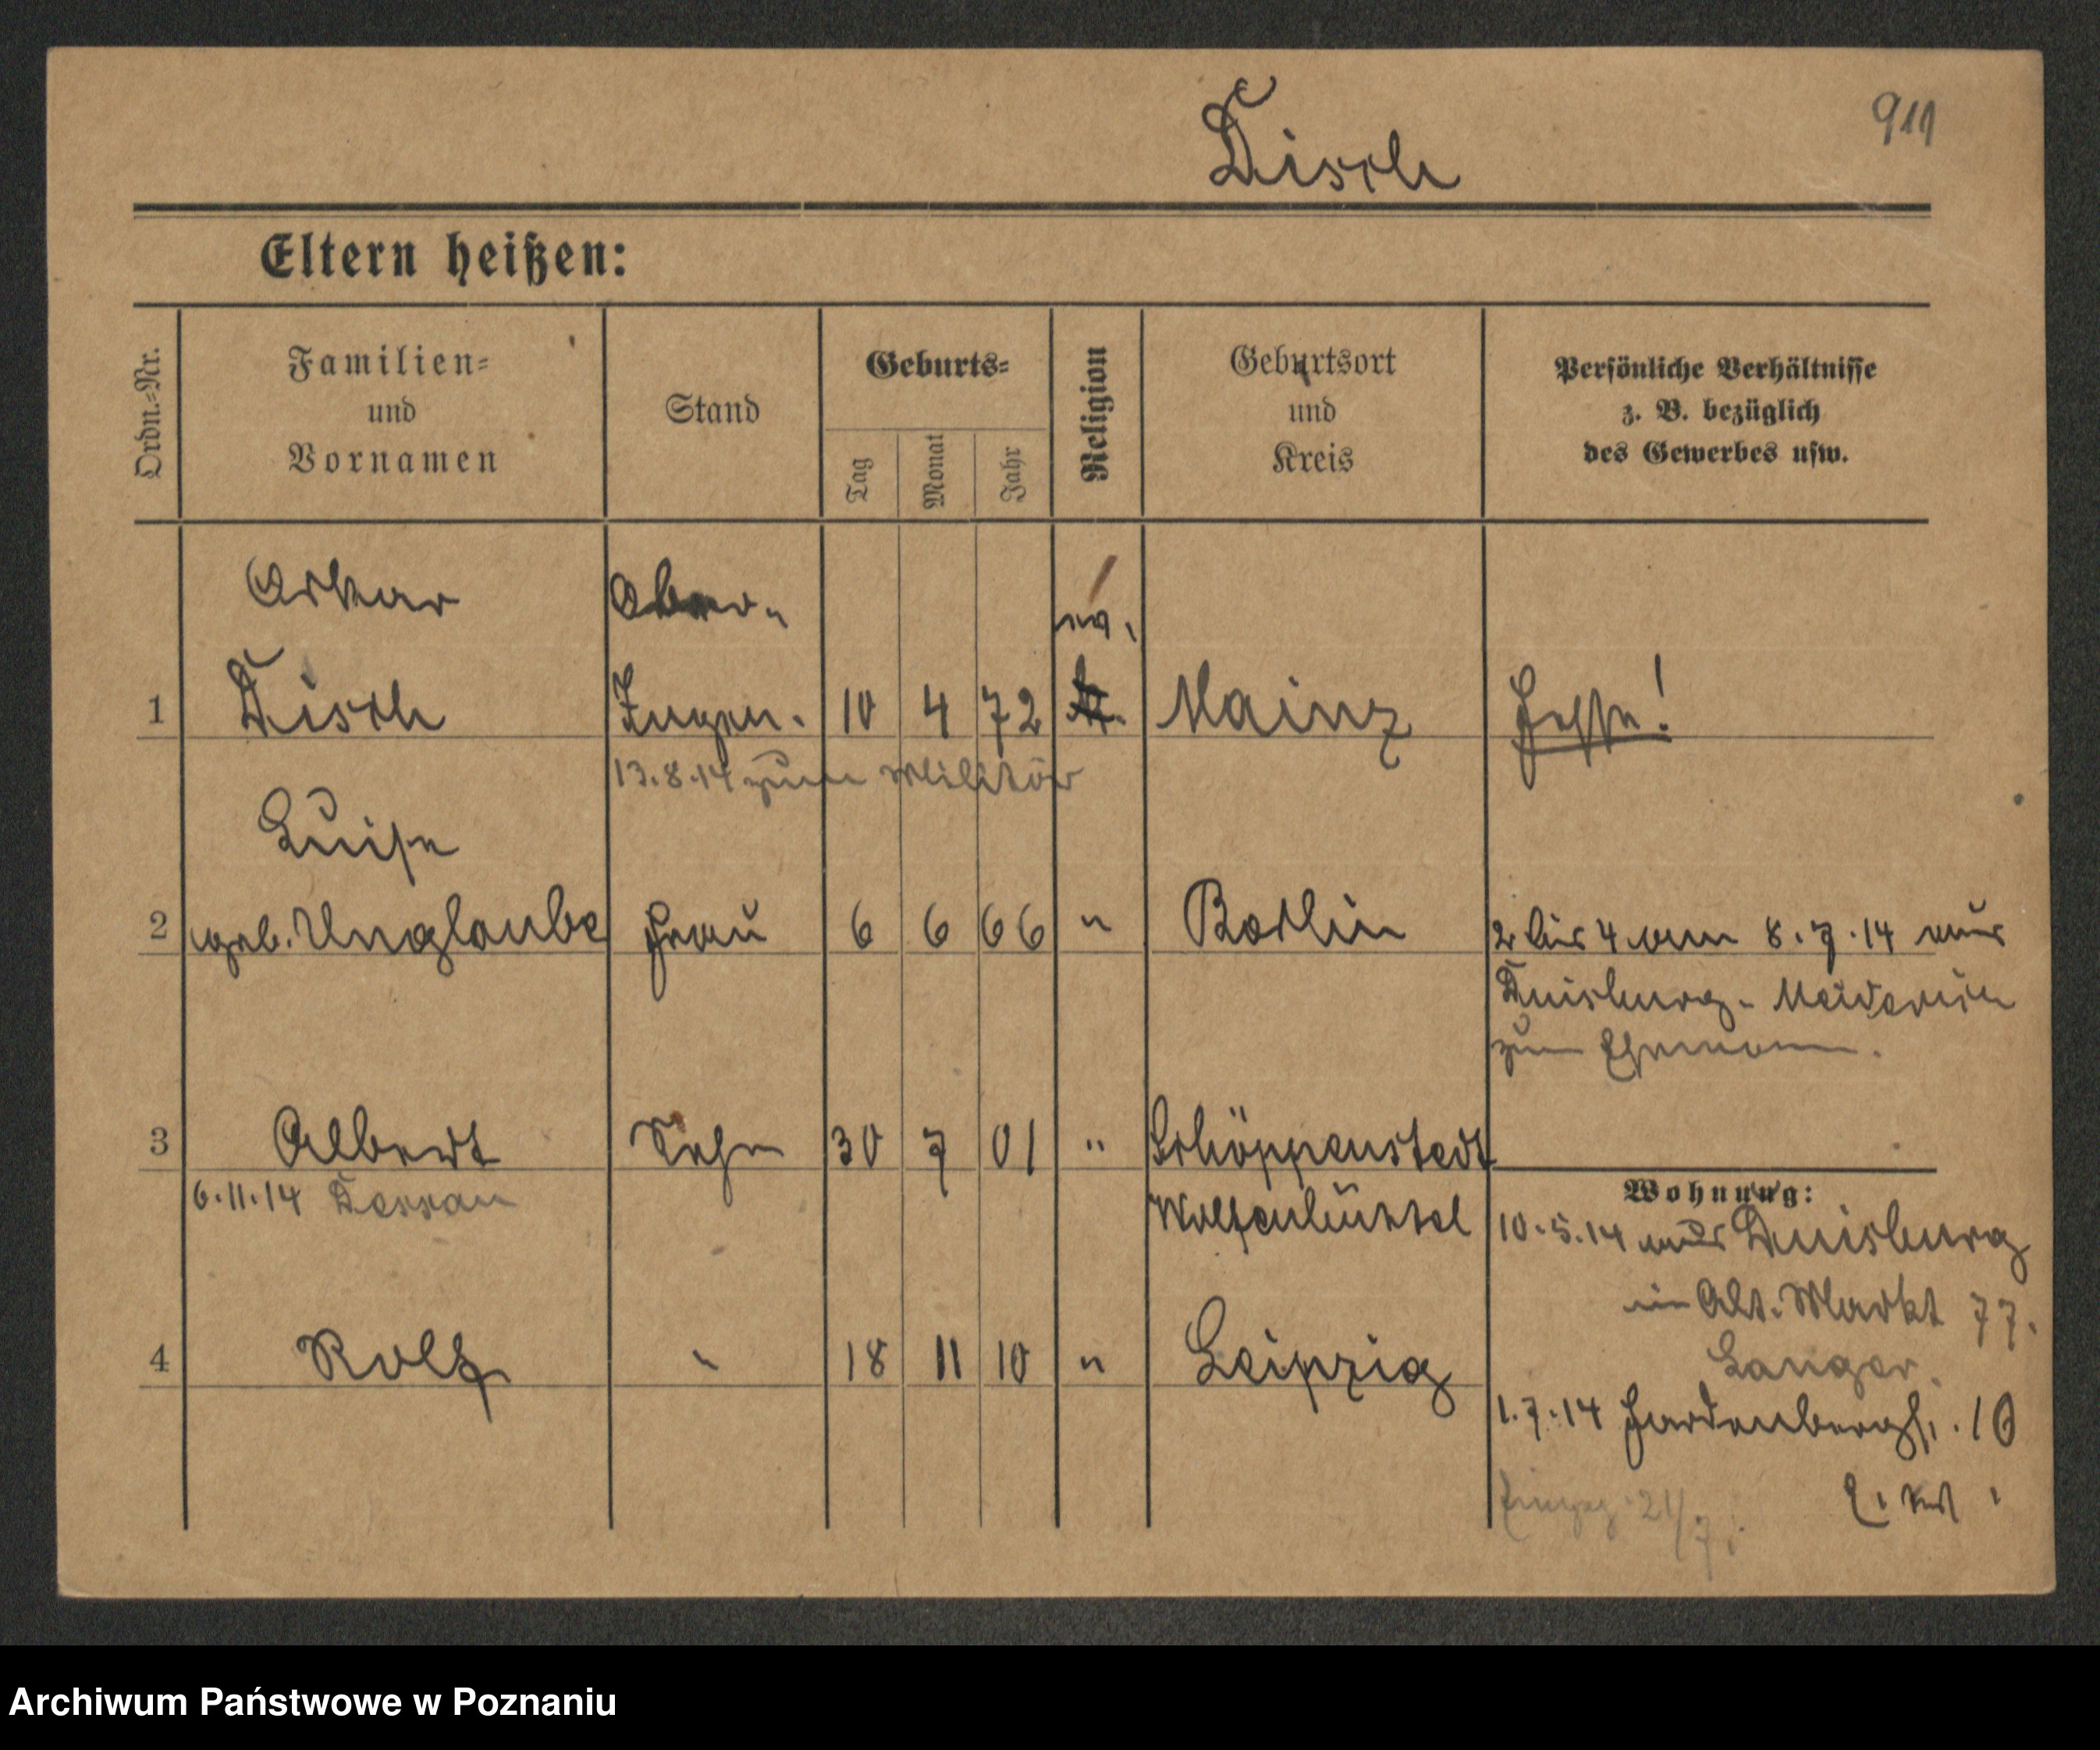 911
Disch
Eltern heißen:
Ordn.-Nr.
Familien-
und
Vornamen
Stand
Geburts-
Tag
Monat
Jahr
Religion
Geburtsort
und
Kreis
Persönliche Verhältnisse
z. B. bezüglich
des Gewerbes usw.
Oskar
Ober-
ev.
1 Disch Ingen. 10 4 72 Mainz Hesse!
13.8.14 zum Militär
Luise
2 geb. Unglaube Frau 6 6 66 " Berlin 2 bis 4 am 8.7.14 aus
Duisburg-Meiderich
zum Ehemann.
3 Albert Sohn 30 7 01 " Schöppenstedt
6.11.14 Dessau
Wolfenbüttel
Wohnung:
10.5.14 aus Duisburg
in Alt. Markt 77.
Langer.
4 Rolf " 18 11 10 " Leipzig
1.7.14 Hardenbergstr. 10
21/7.
Archiwum Państwowe w Poznaniu